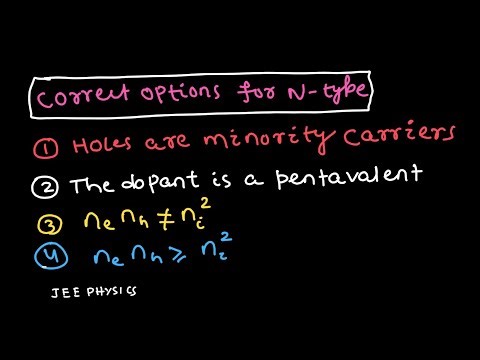 Correct options for N-type
① Holes are minority carriers
② The dopant is a pentavalent
③ nₑ nₕ ≠ nᵢ²
④ nₑ nₕ ⩾ nᵢ²
JEE PHYSICS